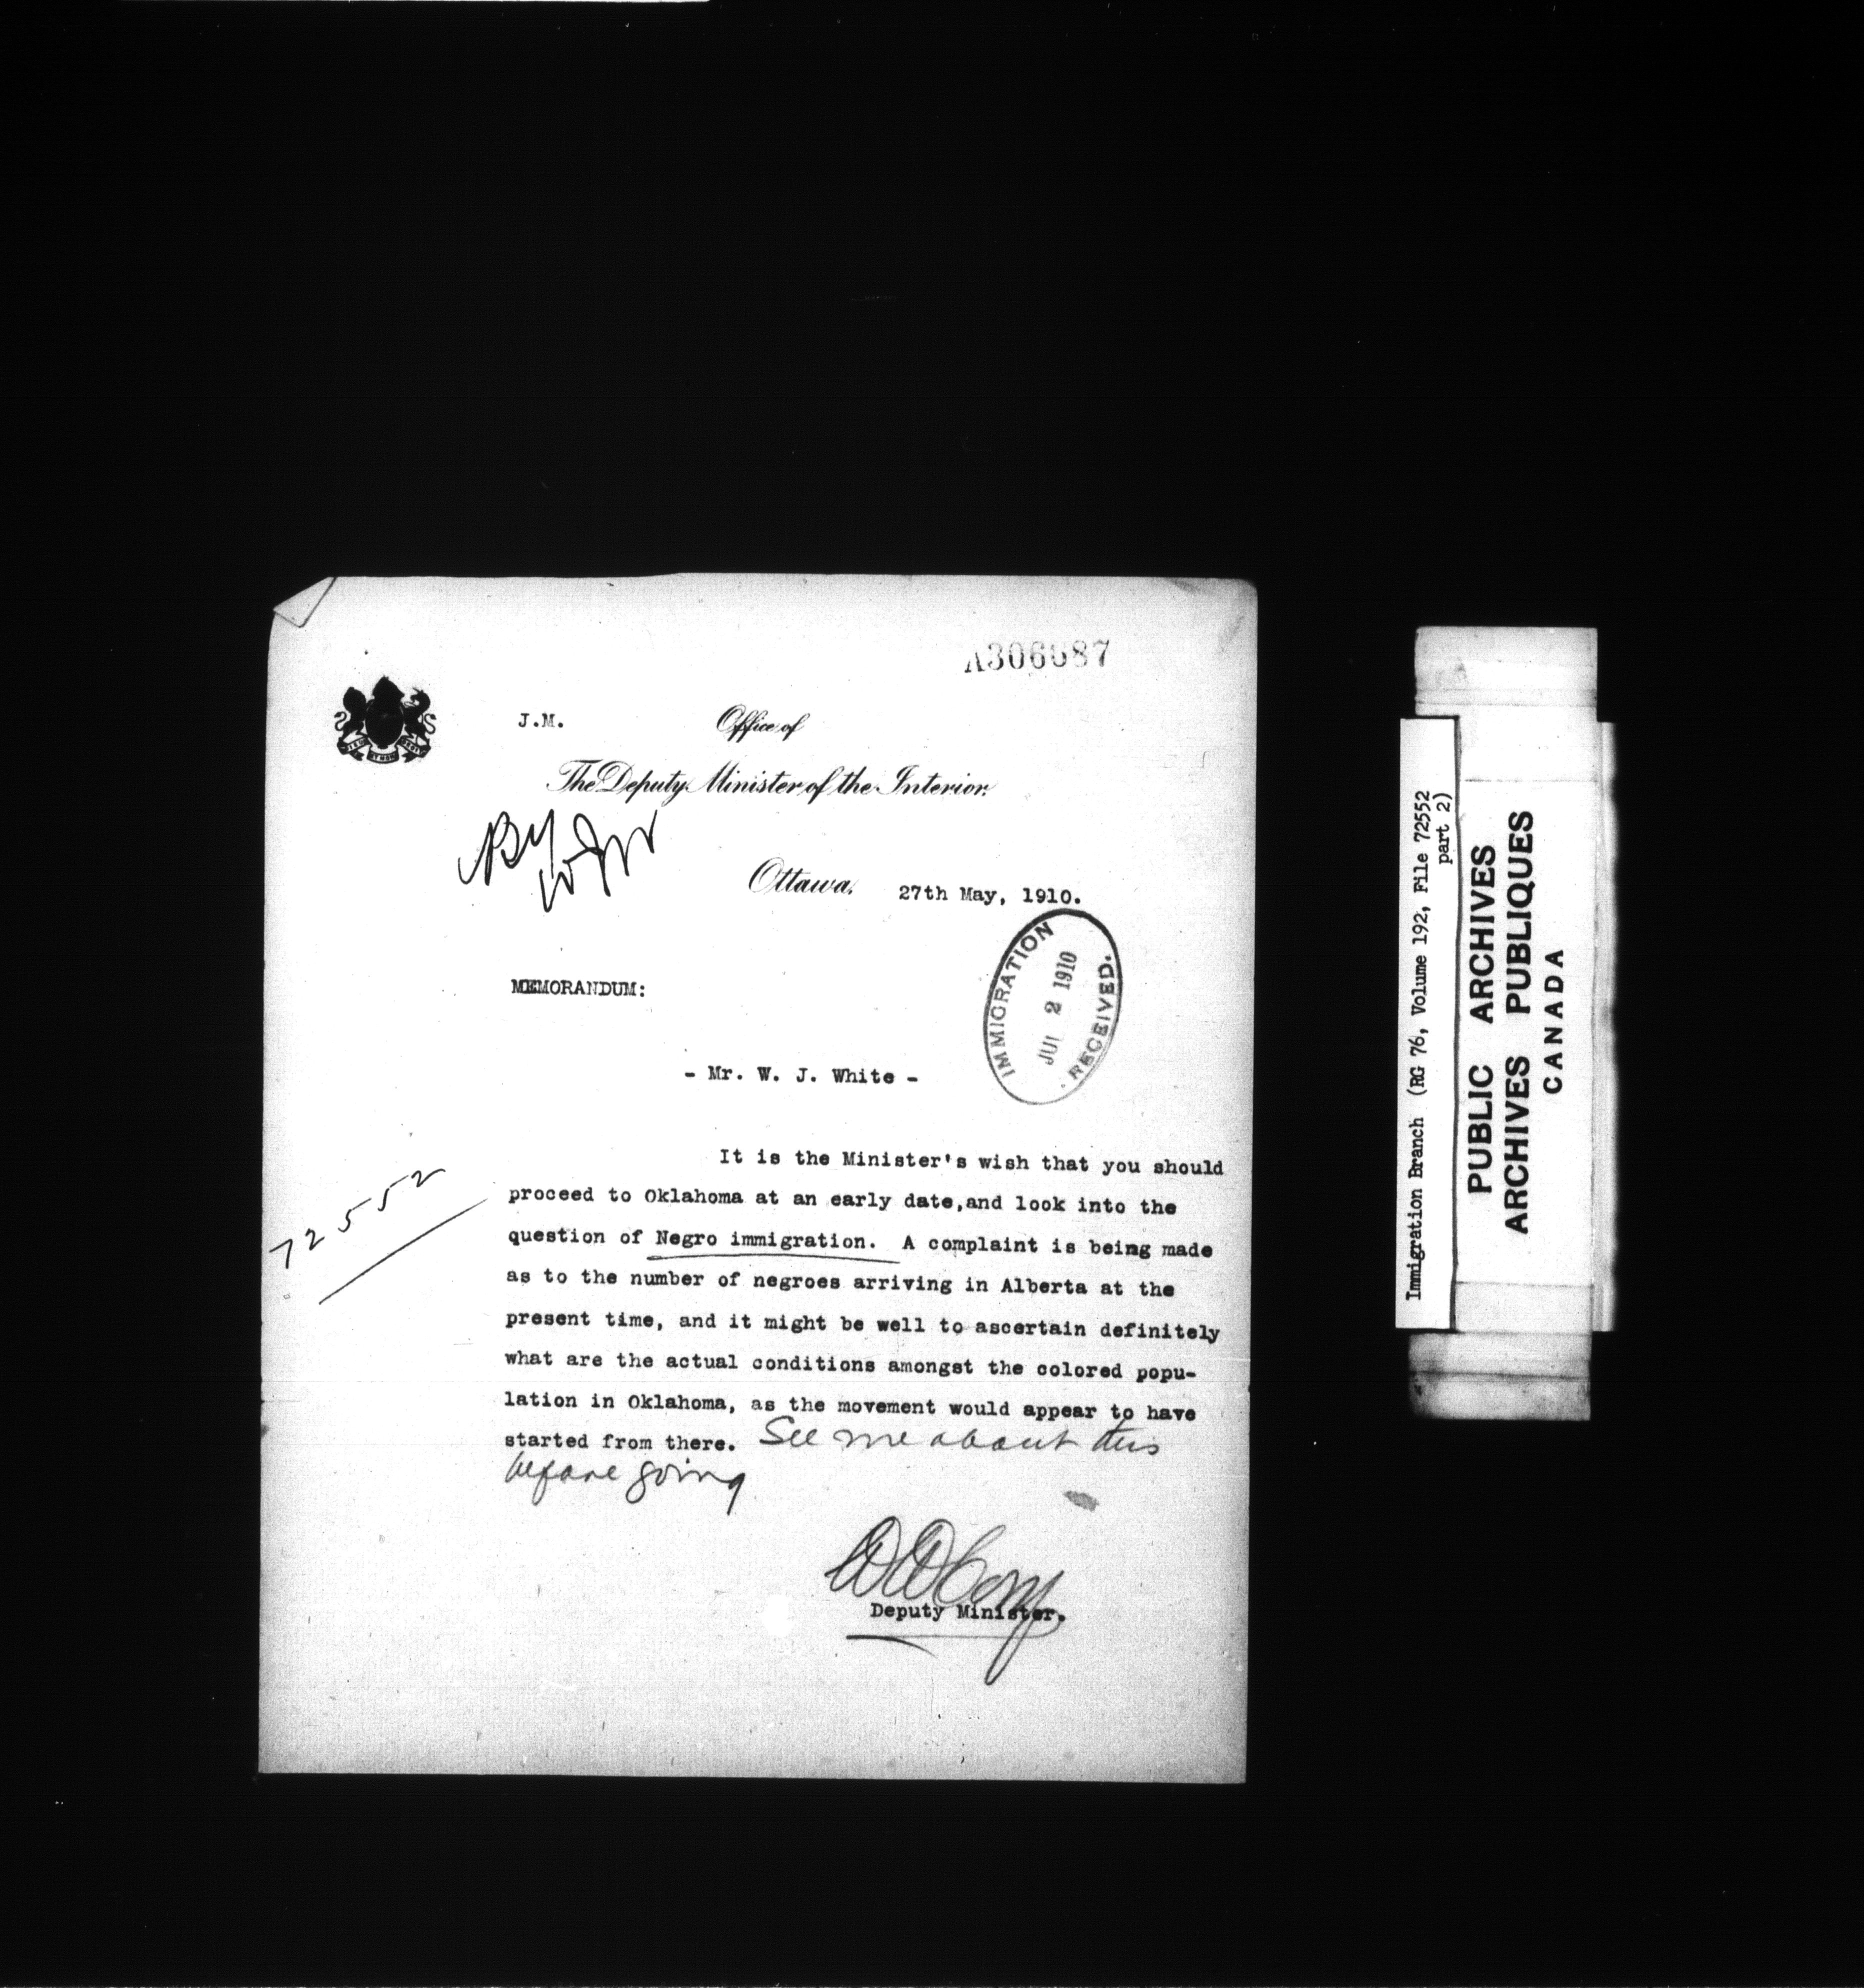 A306087
J.M. Office of
The Deputy Minister of the Interior.
Ottawa, 27th May, 1910.
IMMIGRATION
2 1910
RECEIVED.
MEMORANDUM:
- Mr. W. J. White -
72552
It is the Minister's wish that you should
proceed to Oklahoma at an early date,and look into the
question of Negro immigration. A complaint is being made
as to the number of negroes arriving in Alberta at the
present time, and it might be well to ascertain definitely
what are the actual conditions amongst the colored popu-
lation in Oklahoma, as the movement would appear to have
started from there. See me about this
before going
WWCory
Deputy Minister.
Immigration Branch (RG 76, Volume 192, File 72552
part 2)
PUBLIC ARCHIVES
ARCHIVES PUBLIQUES
CANADA